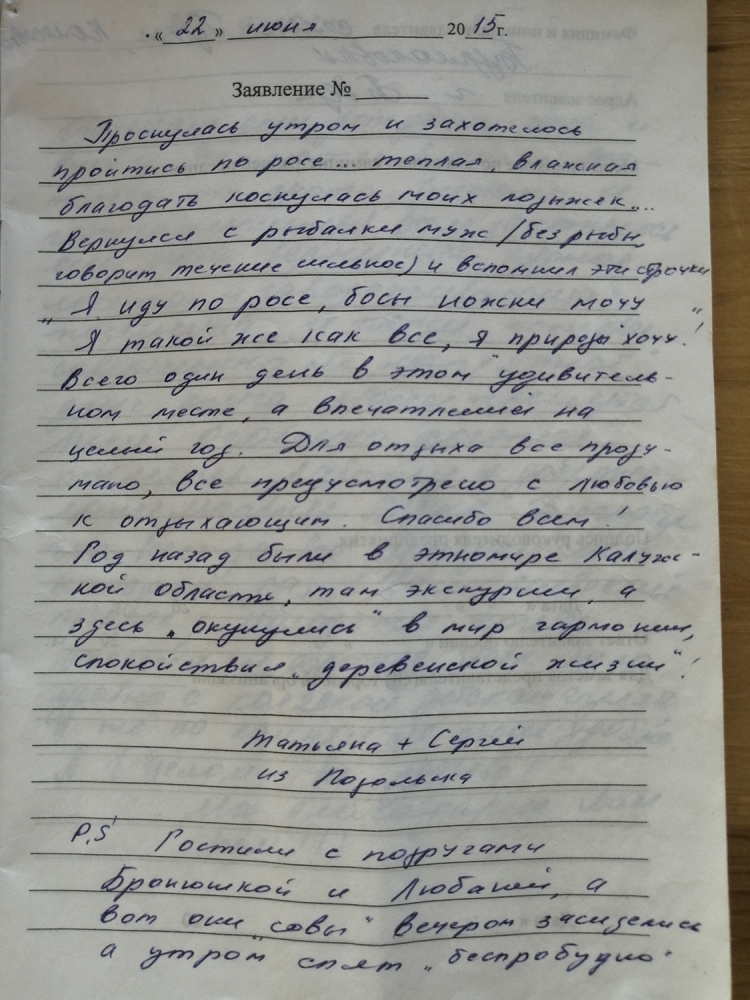 « 22 » июня 2015 г.
Заявление №
Проснулась утром и захотелось
пройтись по росе... теплая, влажная
благодать коснулась моих лодыжек...
Вернулся с рыбалки муж (без рыбы,
говорит течение сильное) и вспомнил эти строчки
„Я иду по росе, босы ножки мочу
Я такой же как все, я природы хочу!"
Всего один день в этом удивитель-
ном месте, а впечатлений на
целый год. Для отдыха все проду-
мано, все предусмотрено с любовью
к отдыхающим. Спасибо всем!
Год назад были в этномире Калуж-
кой области, там экскурсии, а
здесь „окунулись" в мир гармонии,
спокойствия „деревенской жизни"!
Татьяна + Сергей
из Подольска
P.S Гостили с подругами
Бронюшкой и Любаней, а
вот они „совы" вечером засиделись
а утром спят „беспробудно"